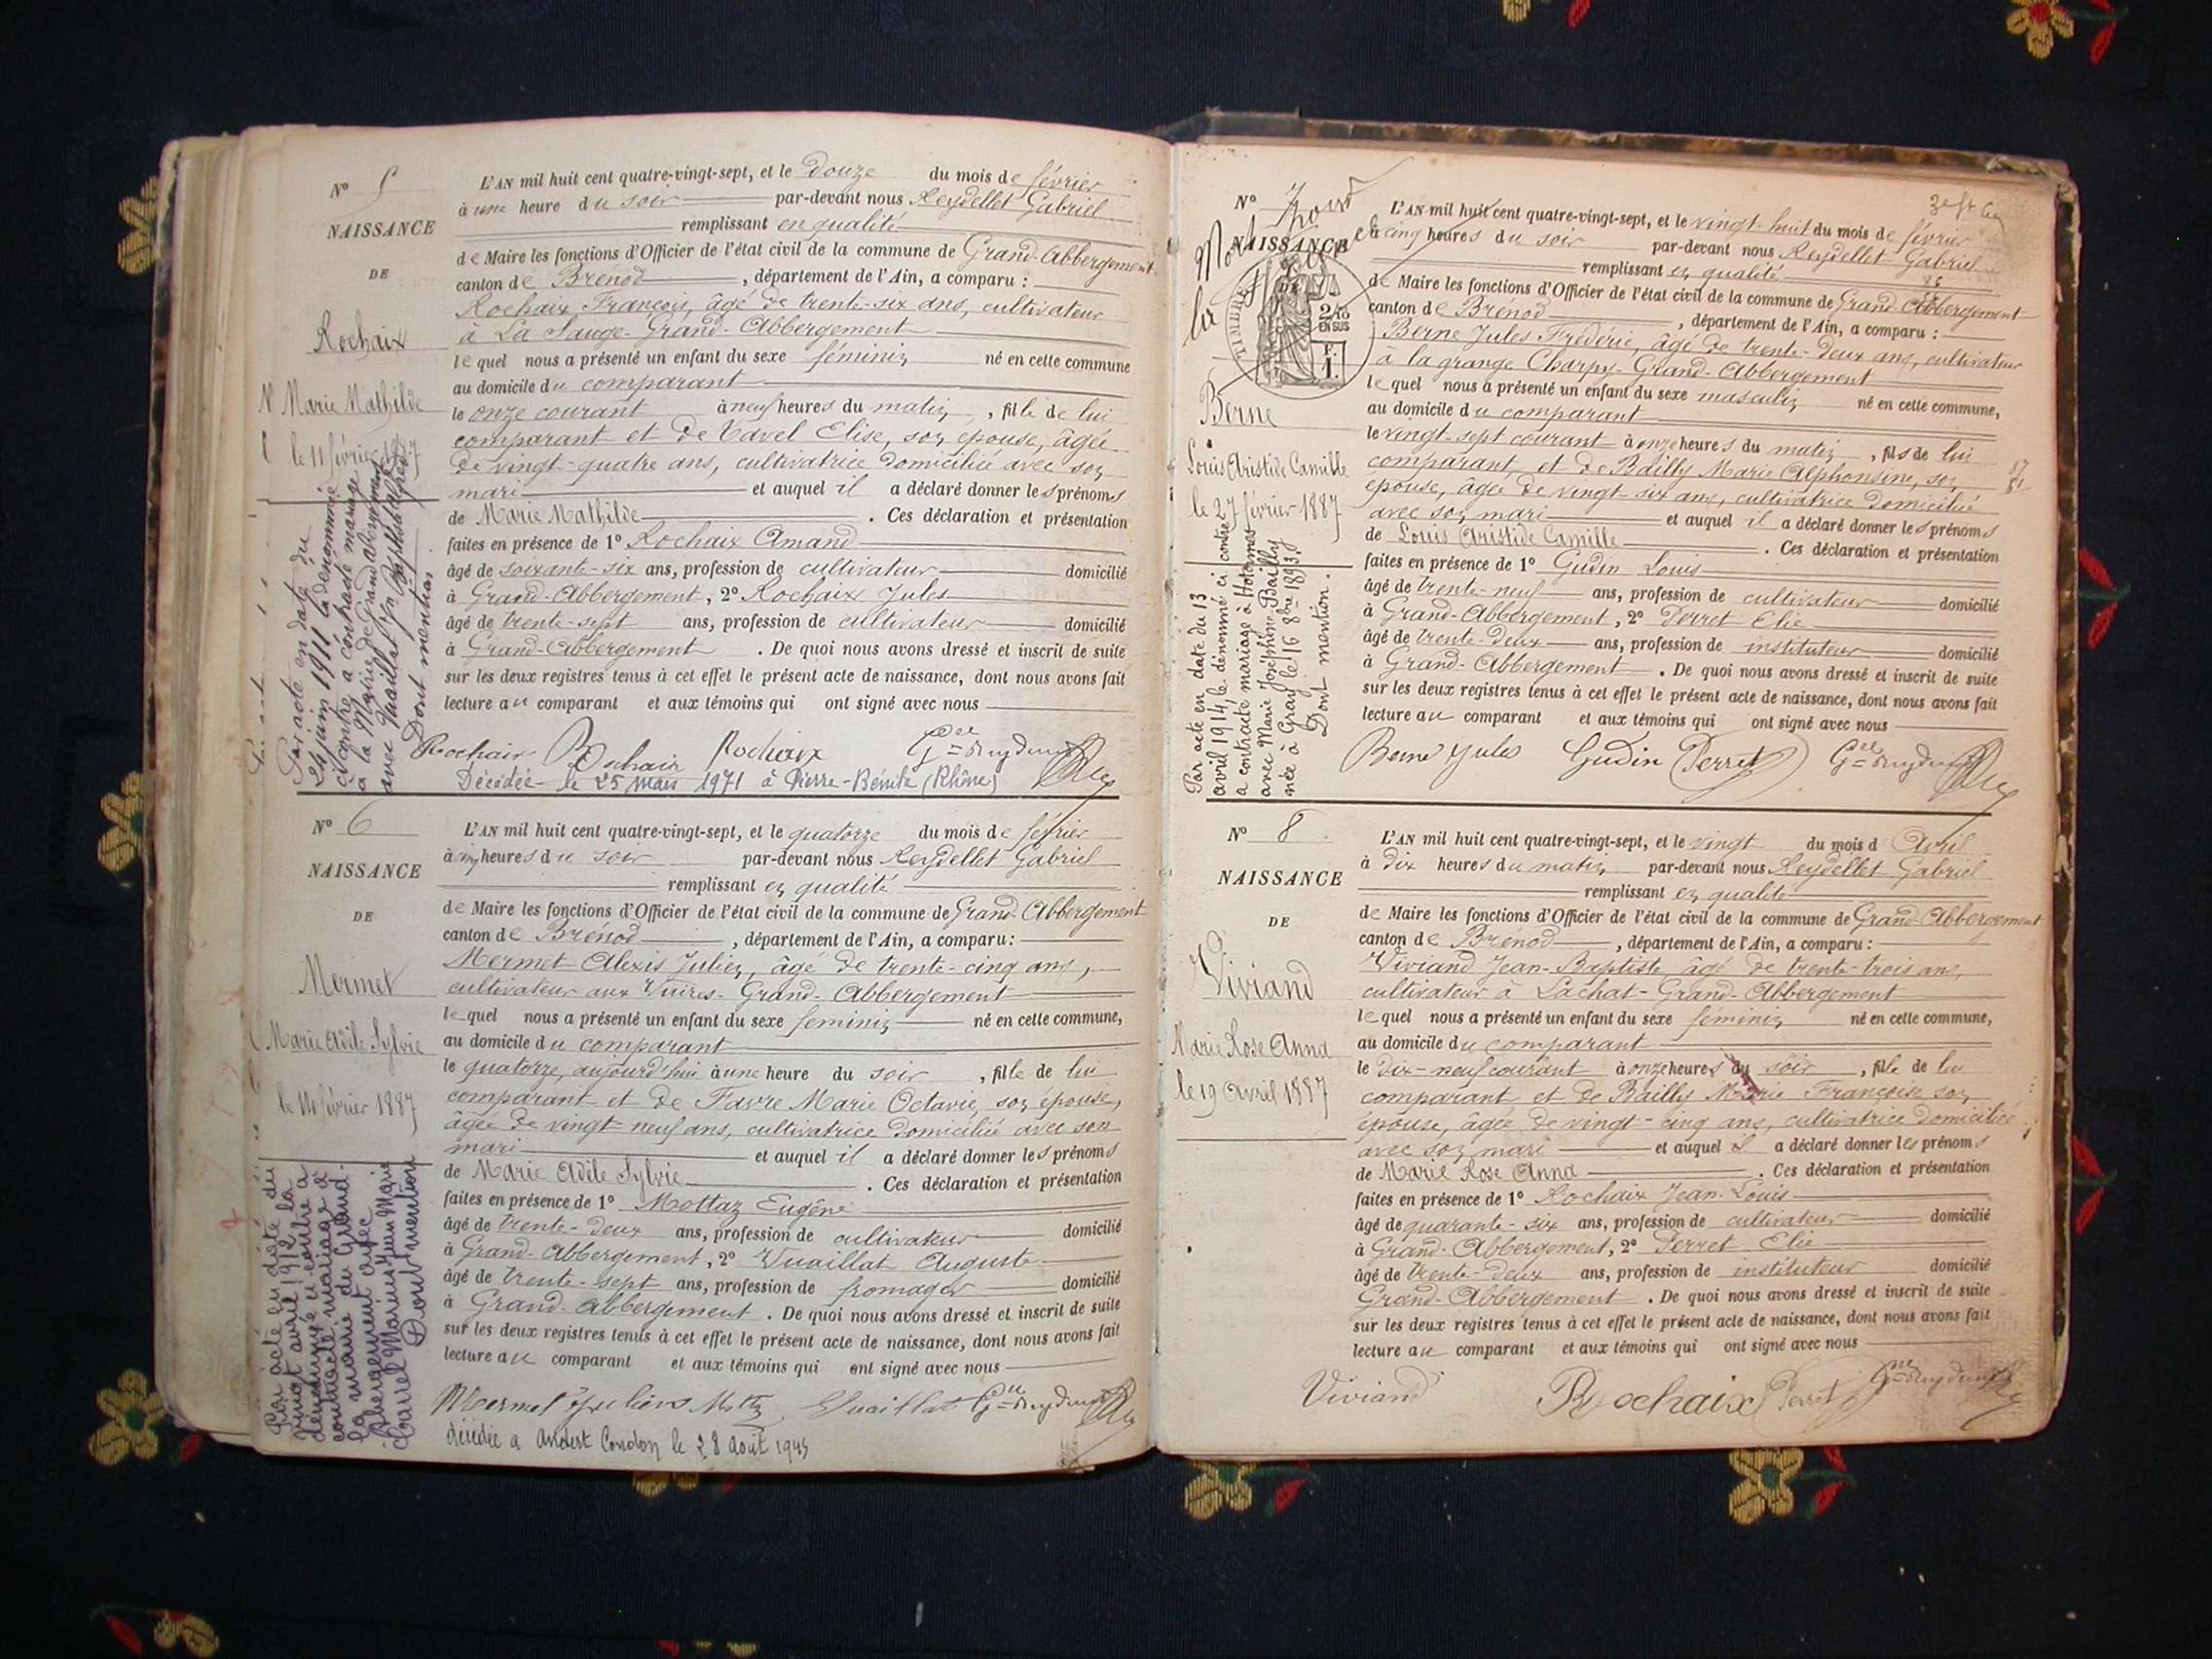 N° 5
NAISSANCE
DE
Rochaix
Marie Mathilde
le 11 février 1887
Par acte en date du
24 juin 1911 la dénommée
ci contre a contracté mariage
à la Mairie de Grand abergement
avec Vuaillat Jn Baptiste Alfred
Dont mention.
L'AN mil huit cent quatre-vingt-sept, et le Douze du mois de février
à une heure du soir par-devant nous Reydellet Gabriel
remplissant en qualité
de Maire les fonctions d'Officier de l'état civil de la commune de Grand-Abbergement
canton de Brénod, département de l'Ain, a comparu :
Rochaix François, âgé de trente-six ans, cultivateur
à La Sauge-Grand-Abbergement
lequel nous a présenté un enfant du sexe féminin né en cette commune
au domicile du comparant
le onze courant à neuf heures du matin, fille de lui
comparant et de Tavel Elise, son épouse, âgée
de vingt-quatre ans, cultivatrice domiciliée avec son
mari et auquel il a déclaré donner les prénoms
de Marie Mathilde. Ces déclaration et présentation
faites en présence de 1° Rochaix Amand
âgé de soixante-six ans, profession de cultivateur domicilié
à Grand-Abbergement, 2° Rochaix Jules
âgé de trente-sept ans, profession de cultivateur domicilié
à Grand-Abbergement. De quoi nous avons dressé et inscrit de suite
sur les deux registres tenus à cet effet le présent acte de naissance, dont nous avons fait
lecture au comparant et aux témoins qui ont signé avec nous
Rochaix Rochaix Rochaix
Décédée le 25 mars 1971 à Pierre-Bénite (Rhône)
N° 6
NAISSANCE
DE
Mermet
Marie Adèle Sylvie
le 14 février 1887
Par acte en date du
vingt avril 1912 la
dénommée ci-contre a
contracté mariage à
la mairie du Grand-
Abergement avec
Marius Jean Marie
Dont mention
L'AN mil huit cent quatre-vingt-sept, et le quatorze du mois de février
à cinq heures du soir par-devant nous Reydellet Gabriel
remplissant en qualité
de Maire les fonctions d'Officier de l'état civil de la commune de Grand-Abbergement
canton de Brénod, département de l'Ain, a comparu :
Mermet Alexis Julien, âgé de trente-cinq ans,
cultivateur aux Vuires-Grand-Abbergement
lequel nous a présenté un enfant du sexe féminin né en cette commune,
au domicile du comparant
le quatorze, aujourd'hui à une heure du soir, fille de lui
comparant et de Favre Marie Octavie, son épouse,
âgée de vingt-neuf ans, cultivatrice domiciliée avec son
mari et auquel il a déclaré donner les prénoms
de Marie Adèle Sylvie. Ces déclaration et présentation
faites en présence de 1° Mottaz Eugène
âgé de trente-deux ans, profession de cultivateur domicilié
à Grand-Abbergement, 2° Vuaillat Auguste
âgé de trente-sept ans, profession de fromager domicilié
à Grand-Abbergement. De quoi nous avons dressé et inscrit de suite
sur les deux registres tenus à cet effet le présent acte de naissance, dont nous avons fait
lecture au comparant et aux témoins qui ont signé avec nous
Mermet Julien Mottaz Vuaillat
décédée a Andert Condon le 28 août 1945
N° 7
NAISSANCE
TIMBRE
2/10
EN SUS
F.
1.
Berne
Louis Aristide Camille
le 27 février 1887
Par acte en date du 13
avril 1914, le dénommé ci contre
a contracté mariage à Hotonnes
avec Marie Joséphine Bailly
née à Gray le 16 8bre 1893.
Dont mention.
L'AN mil huit cent quatre-vingt-sept, et le vingt-huit du mois de février
à cinq heures du soir par-devant nous Reydellet Gabriel
remplissant en qualité
de Maire les fonctions d'Officier de l'état civil de la commune de Grand-Abbergement
canton de Brénod, département de l'Ain, a comparu :
Berne Jules Frédéric, âgé de trente-deux ans, cultivateur
à la grange Charpy-Grand-Abbergement
lequel nous a présenté un enfant du sexe masculin né en cette commune,
au domicile du comparant
le vingt-sept courant à onze heures du matin, fils de lui
comparant, et de Bailly Marie Alphonsine, son
épouse, âgée de vingt-six ans, cultivatrice domicilié
avec son mari et auquel il a déclaré donner les prénoms
de Louis Aristide Camille. Ces déclaration et présentation
faites en présence de 1° Gudin Louis
âgé de trente-neuf ans, profession de cultivateur domicilié
à Grand-Abbergement, 2° Perret Elie
âgé de trente-deux ans, profession de instituteur domicilié
à Grand-Abbergement. De quoi nous avons dressé et inscrit de suite
sur les deux registres tenus à cet effet le présent acte de naissance, dont nous avons fait
lecture au comparant et aux témoins qui ont signé avec nous
Berne Jules Gudin Perret
N° 8
NAISSANCE
DE
Viviand
Marie Rose Anna
le 19 Avril 1887
L'AN mil huit cent quatre-vingt-sept, et le vingt du mois d'Avril
à dix heures du matin par-devant nous Reydellet Gabriel
remplissant en qualité
de Maire les fonctions d'Officier de l'état civil de la commune de Grand-Abbergement
canton de Brénod, département de l'Ain, a comparu :
Viviand Jean-Baptiste, âgé de trente-trois ans,
cultivateur à Lachat-Grand-Abbergement
lequel nous a présenté un enfant du sexe féminin né en cette commune,
au domicile du comparant
le dix-neuf courant à onze heures du soir, fille de lui
comparant et de Bailly Marie Françoise son
épouse, âgée de vingt-cinq ans, cultivatrice domiciliée
avec son mari et auquel il a déclaré donner les prénoms
de Marie Rose Anna. Ces déclaration et présentation
faites en présence de 1° Rochaix Jean-Louis
âgé de quarante-six ans, profession de cultivateur domicilié
à Grand-Abbergement, 2° Perret Elie
âgé de trente-deux ans, profession de instituteur domicilié
Grand-Abbergement. De quoi nous avons dressé et inscrit de suite
sur les deux registres tenus à cet effet le présent acte de naissance, dont nous avons fait
lecture au comparant et aux témoins qui ont signé avec nous
Viviand Rochaix Perret